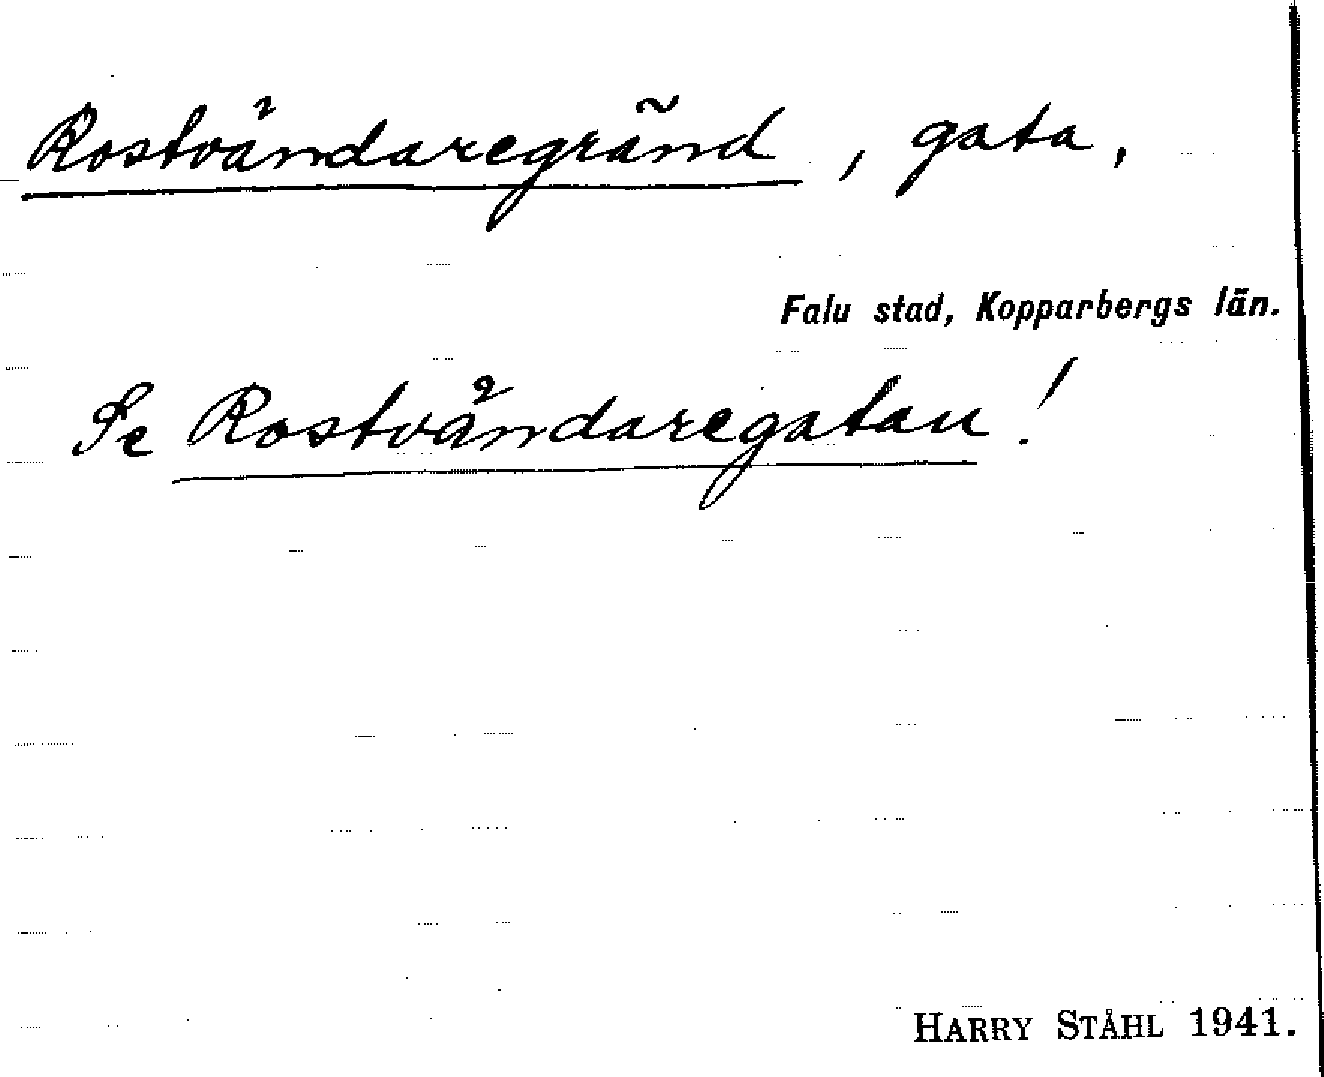 Rostvändaregränd, gata,
Falu stad, Kopparbergs län.
Se Rostvändaregatan!
HARRY STÅHL 1941.